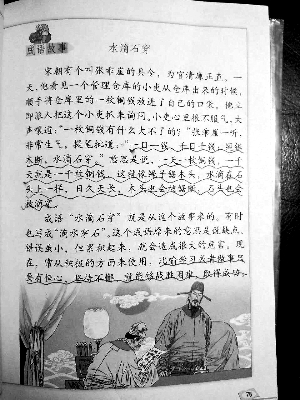 成语故事
水滴石穿
宋朝有个叫张乖崖的县令，为官清廉正直。一
天，他看见一个管理仓库的小吏从仓库出来的时候，
顺手将仓库里的一枚铜钱放进了自己的口袋。他立
即派人把这个小吏抓来询问。小吏心里很不服气，大
声嚷道：“一枚铜钱有什么大不了的？”张乖崖一听，
非常生气，提笔批道：“一日一钱，千日千钱；绳锯
木断，水滴石穿。”意思是说，一天一枚铜钱，一千
天就是一千枚铜钱。这就像绳子锯木头，水滴在石
头上一样，日久天长，木头也会被锯断，石头也会
被滴穿。
成语“水滴石穿”就是从这个故事来的。有时
也写成“滴水穿石”。这个成语原来的意思是说缺点、
错误虽小，但累积起来，就会造成很大的危害。现
在，常从积极的方面来使用，比喻学习或者做事只
要有恒心，坚持不懈，就能够战胜困难，取得成功。
75